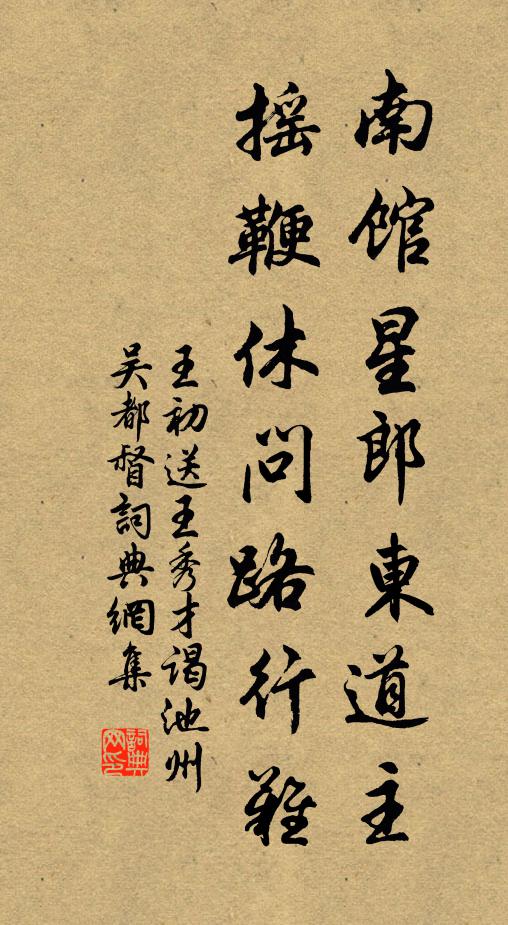 南館星郎東道主
摇鞭休問路行難
王初送王秀才謁池州
吴都督詞典網集
詞典網印